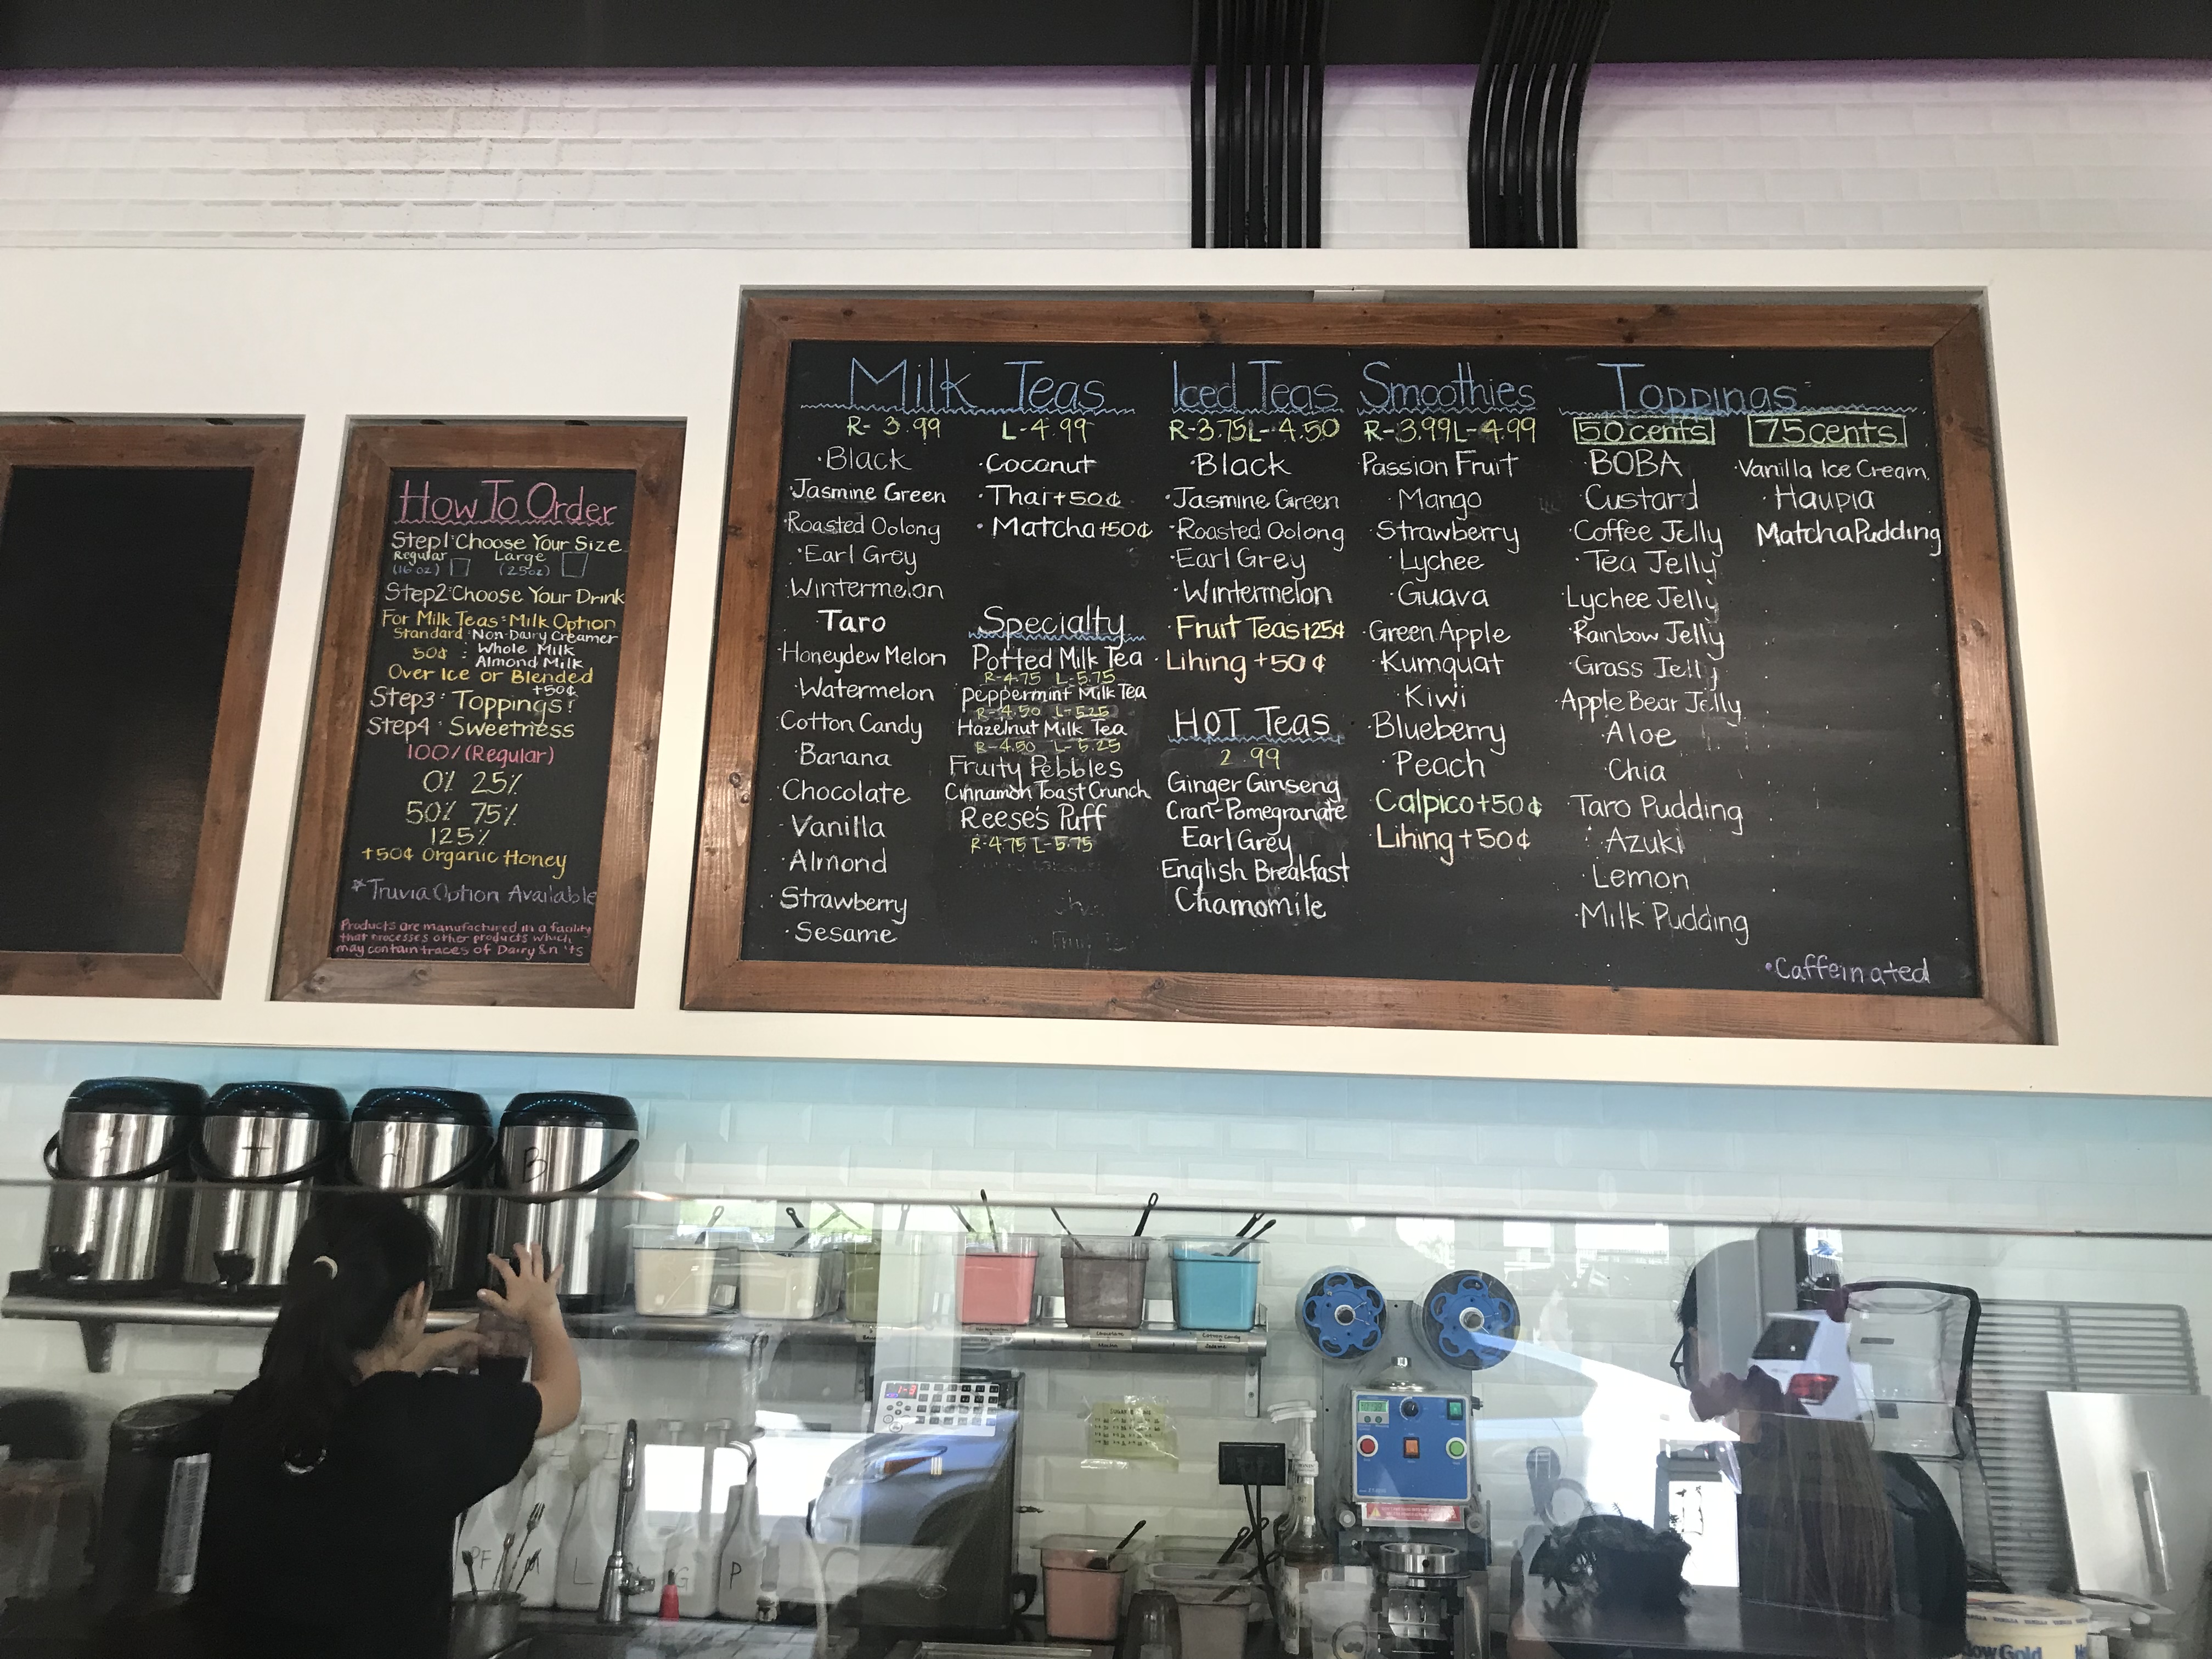 How To Order
Step1: Choose Your Size
Regular Large
(16oz) (25oz)
Step2: Choose Your Drink
For Milk Teas: Milk Option
Standard: Non-Dairy Creamer
50¢ : Whole Milk
Almond Milk
Over Ice or Blended
+50¢
Step3: Toppings!
Step4: Sweetness
100% (Regular)
0% 25%
50% 75%
125%
+50¢ Organic Honey
*Truvia Option Available
Products are manufactured in a facility
that processes other products which
may contain traces of Dairy &
Milk Teas
R- 3.99 L-4.99
·Black
·Jasmine Green
·Roasted Oolong
·Earl Grey
·Wintermelon
Taro
·Honeydew Melon
·Watermelon
·Cotton Candy
·Banana
·Chocolate
·Vanilla
·Almond
·Strawberry
·Sesame
·Coconut
·Thai+50¢
·Matcha+50¢
Specialty
Potted Milk Tea
R-4.75 L-5.75
Peppermint Milk Tea
R-4.50 L-5.25
Hazelnut Milk Tea
R-4.50 L-5.25
Fruity Pebbles
Cinnamon Toast Crunch
Reese's Puff
R-4.75 L-5.75
Iced Teas
R-3.75 L-4.50
·Black
·Jasmine Green
·Roasted Oolong
·Earl Grey
·Wintermelon
·Fruit Teas+25¢
·Lihing +50¢
HOT Teas
2.99
Ginger Ginseng
Cran-Pomegranate
Earl Grey
English Breakfast
Chamomile
Smoothies
R-3.99 L-4.99
·Passion Fruit
·Mango
·Strawberry
·Lychee
·Guava
·Green Apple
·Kumquat
·Kiwi
·Blueberry
·Peach
Calpico+50¢
Lihing+50¢
Toppings
50 cents
·BOBA
·Custard
·Coffee Jelly
·Tea Jelly
·Lychee Jelly
·Rainbow Jelly
·Grass Jelly
·Apple Bear Jelly
·Aloe
·Chia
·Taro Pudding
·Azuki
·Lemon
·Milk Pudding
75 cents
·Vanilla Ice Cream
·Haupia
Matcha Pudding
·Caffeinated
T
B
PF
L
G
P
Chocolate
Mocha
Cotton Candy
Sesame
Gold